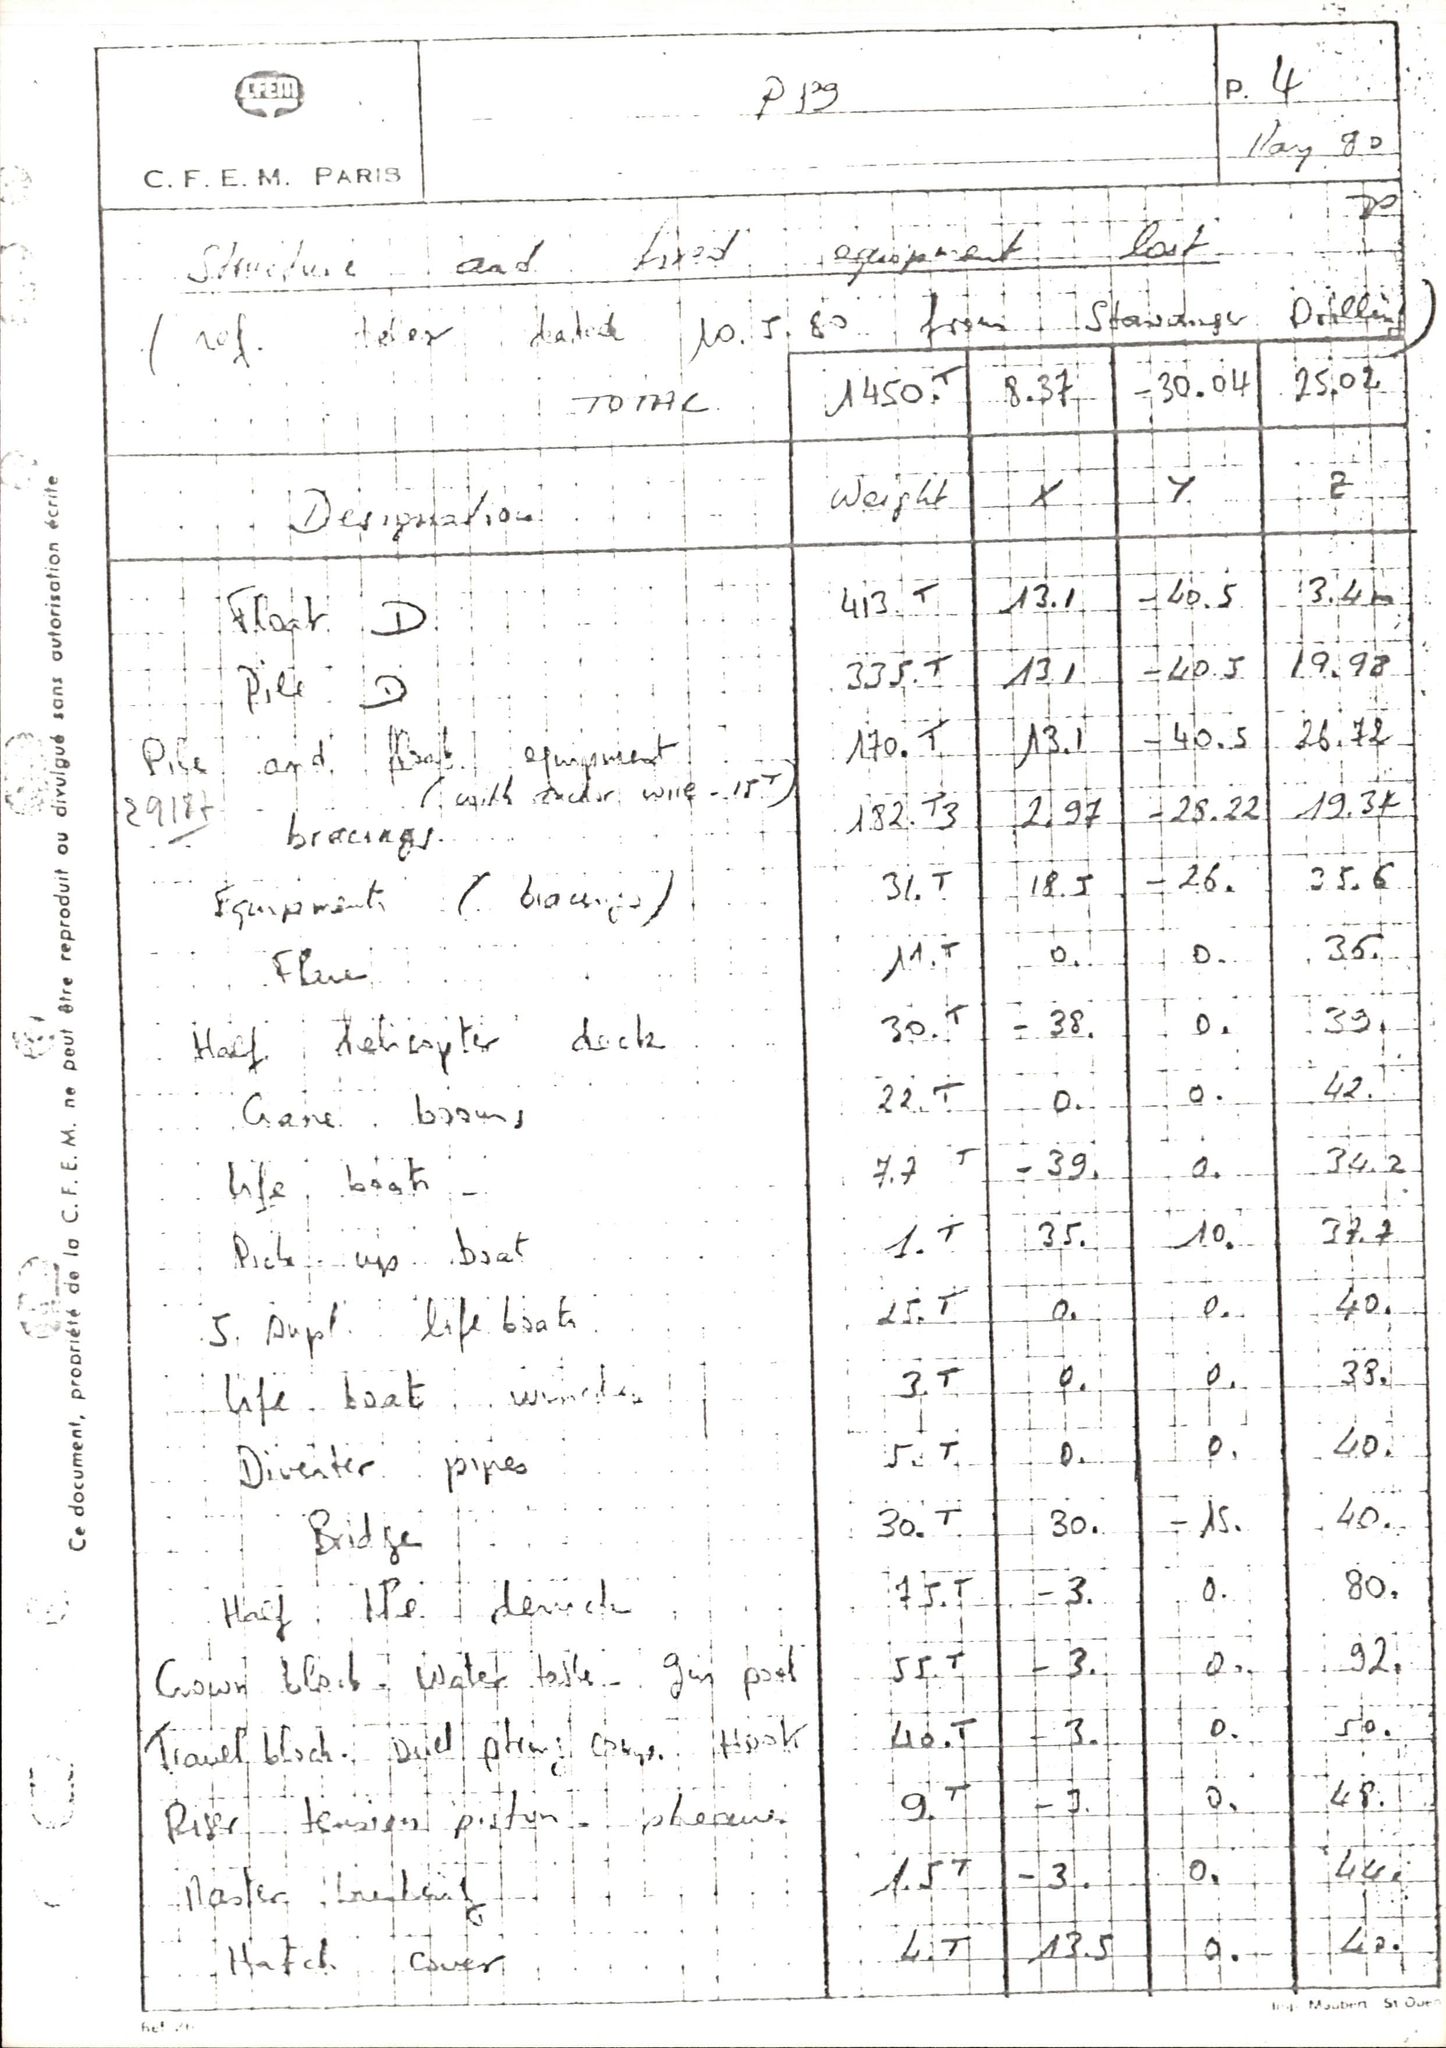 CFEM
C. F. E. M. PARIS
P 139
P. 4
May 80
Structure and fixed equipment lost
(ref. telex dated 10.5.80 from Stavanger Drilling)
TOTAL 1450.T 8.37 -30.04 25.02
Designation Weight X Y Z
Float D 413.T 13.1 -40.5 3.4
Pile D 335.T 13.1 -40.5 19.98
Pile and float equipment 170.T 13.1 -40.5 26.72
(with anchor wire - 15T)
bracings 182.T3 2.97 -28.22 19.37
Equipments (bracings) 31.T 18.5 -26. 35.6
11.T 0. 0. 35.
Half helicopter deck 30.T -38. 0. 39.
Crane booms 22.T 0. 0. 42.
life boats - 7.7 T -39. 0. 34.2
Pick up boat 1.T 35. 10. 37.7
5. Supl. life boats 25.T 0. 0. 40.
life boat winches 3.T 0. 0. 38.
Diverter pipes 5.T 0. 0. 40.
Bridge 30.T 30. -15. 40.
Half the derrick 75.T -3. 0. 80.
Crown block - Water table - Gin pool 55.T -3. 0. 92.
Travel block. Drill string comp. Hook 40.T -3. 0. 50.
Riser tension piston - 9.T -3. 0. 48.
Master 1.5T -3. 0. 44.
Hatch cover 4.T 13.5 0. 40.
Ce document, propriété de la C. F. E. M. ne peut être reproduit ou divulgué sans autorisation écrite
Imp. Maubert St Ouen